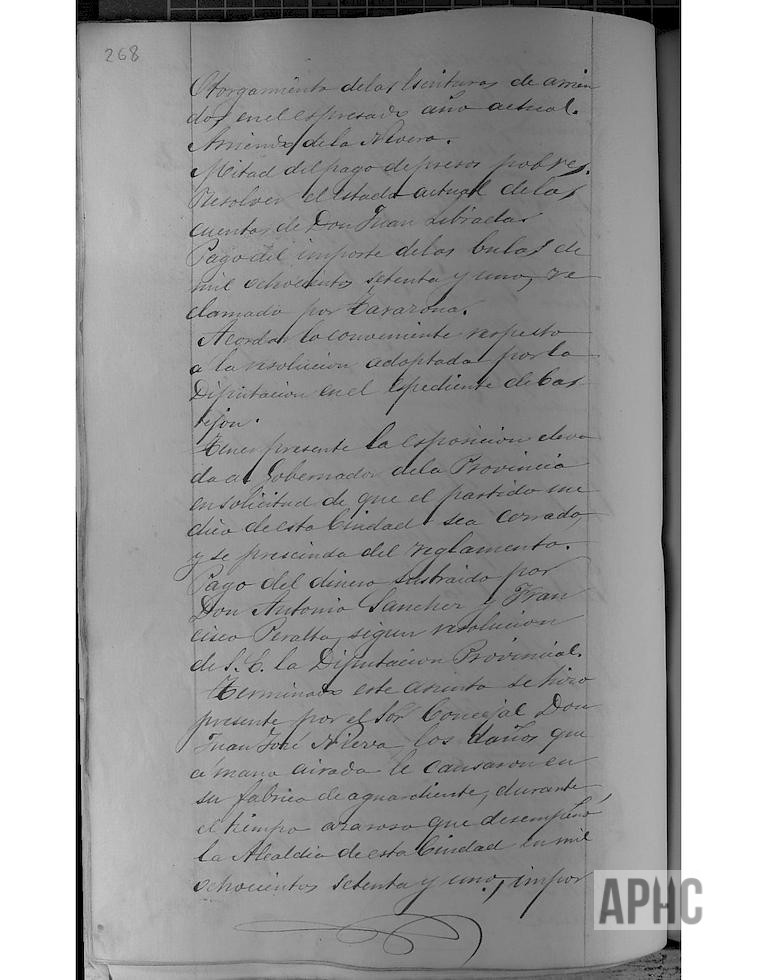 268
Otorgamiento delas Escrituras de arrien
dos enel espresado año actual.
Arriendo dela Nevera.
Mitad del pago de presos pobres.
Resolver el estado actual delas
cuentas de Don Juan
Pago del importe delas bulas de
mil ochocientos setenta y uno, re
clamado por Tarazona.
Acordar lo conveniente respesto
a la resolucion adoptada por la
Diputacion en el espediente de Cas
tejon.
Tener presente la esposicion eleva
da al Gobernador dela Provincia
en solicitud de que el partido me
dico de esta Ciudad sea cerrado,
y se prescinda del reglamento.
Pago del dinero sustraido por
Don Antonio Sanchez y Fran
cisco Peralta, segun resolucion
de S. E. la Diputacion Provincial.
Terminado este asunto se hizo
presente por el Sor Concejal Don
Juan José Nieva, los daños que
á mano airada le causaron en
su fabrica de aguardiente, durante
el tiempo azaroso que desempeñó
la Alcaldia de esta Ciudad en mil
ochocientos setenta y uno, impor
APHC